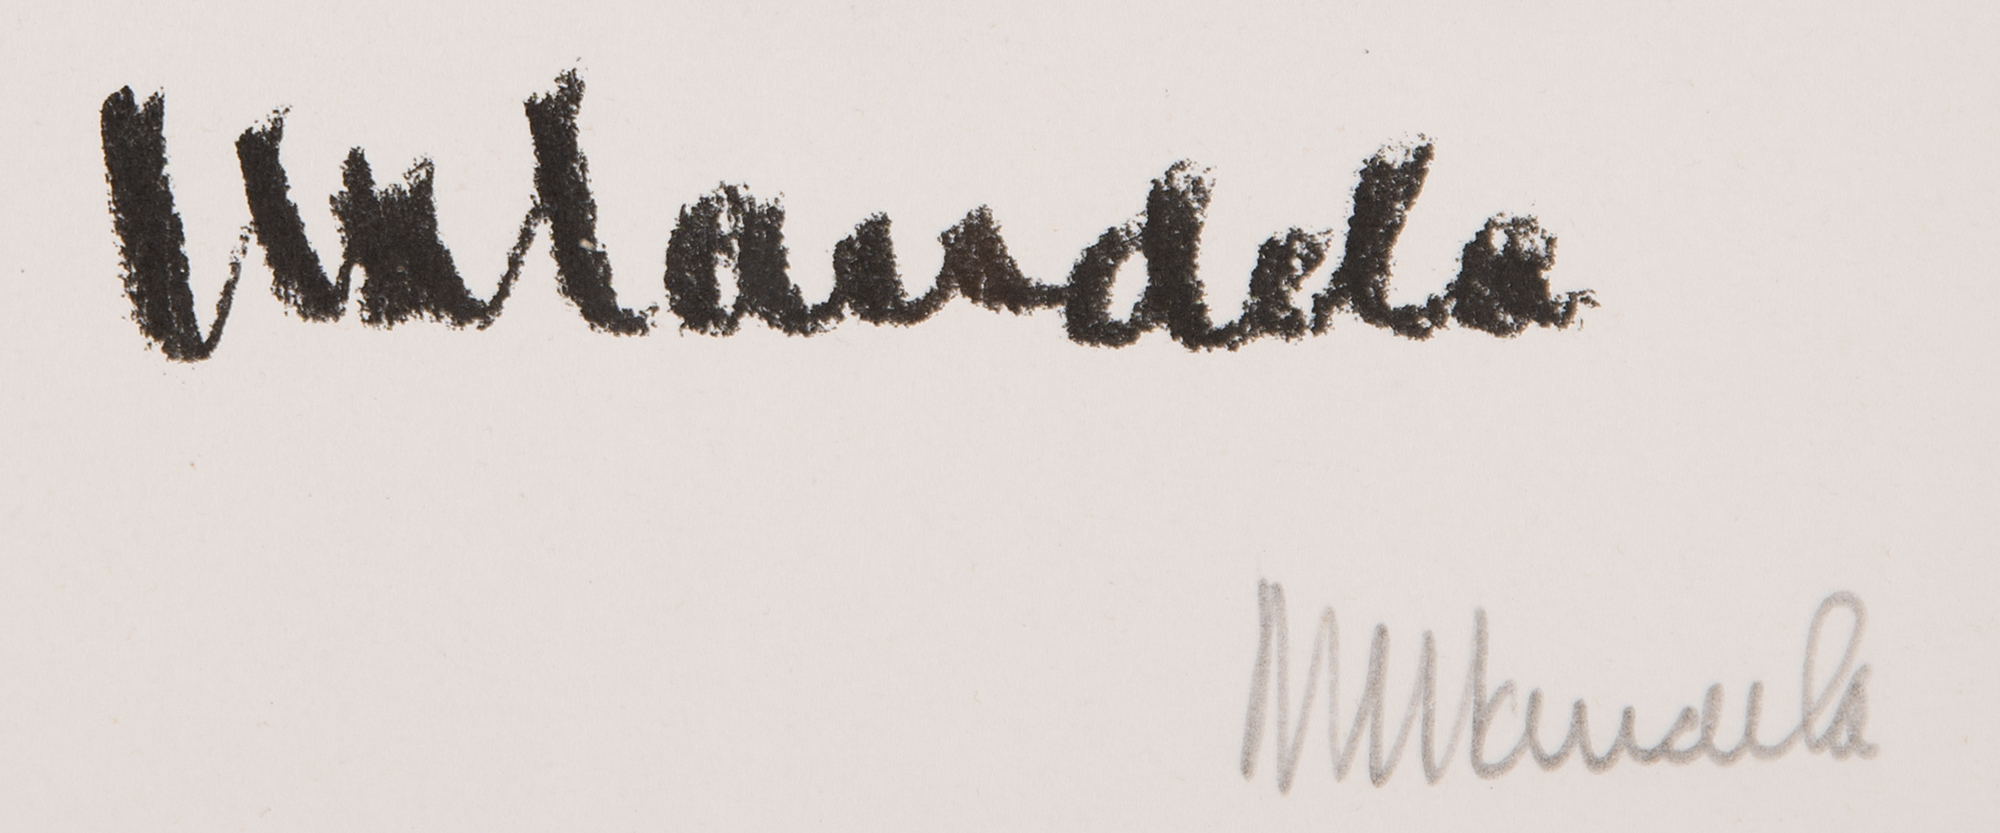 Mandela
Mandela